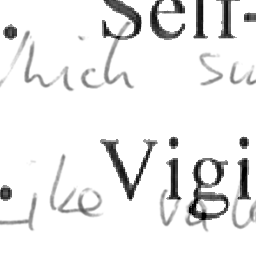 . Self-
which su
. Vigi
like val